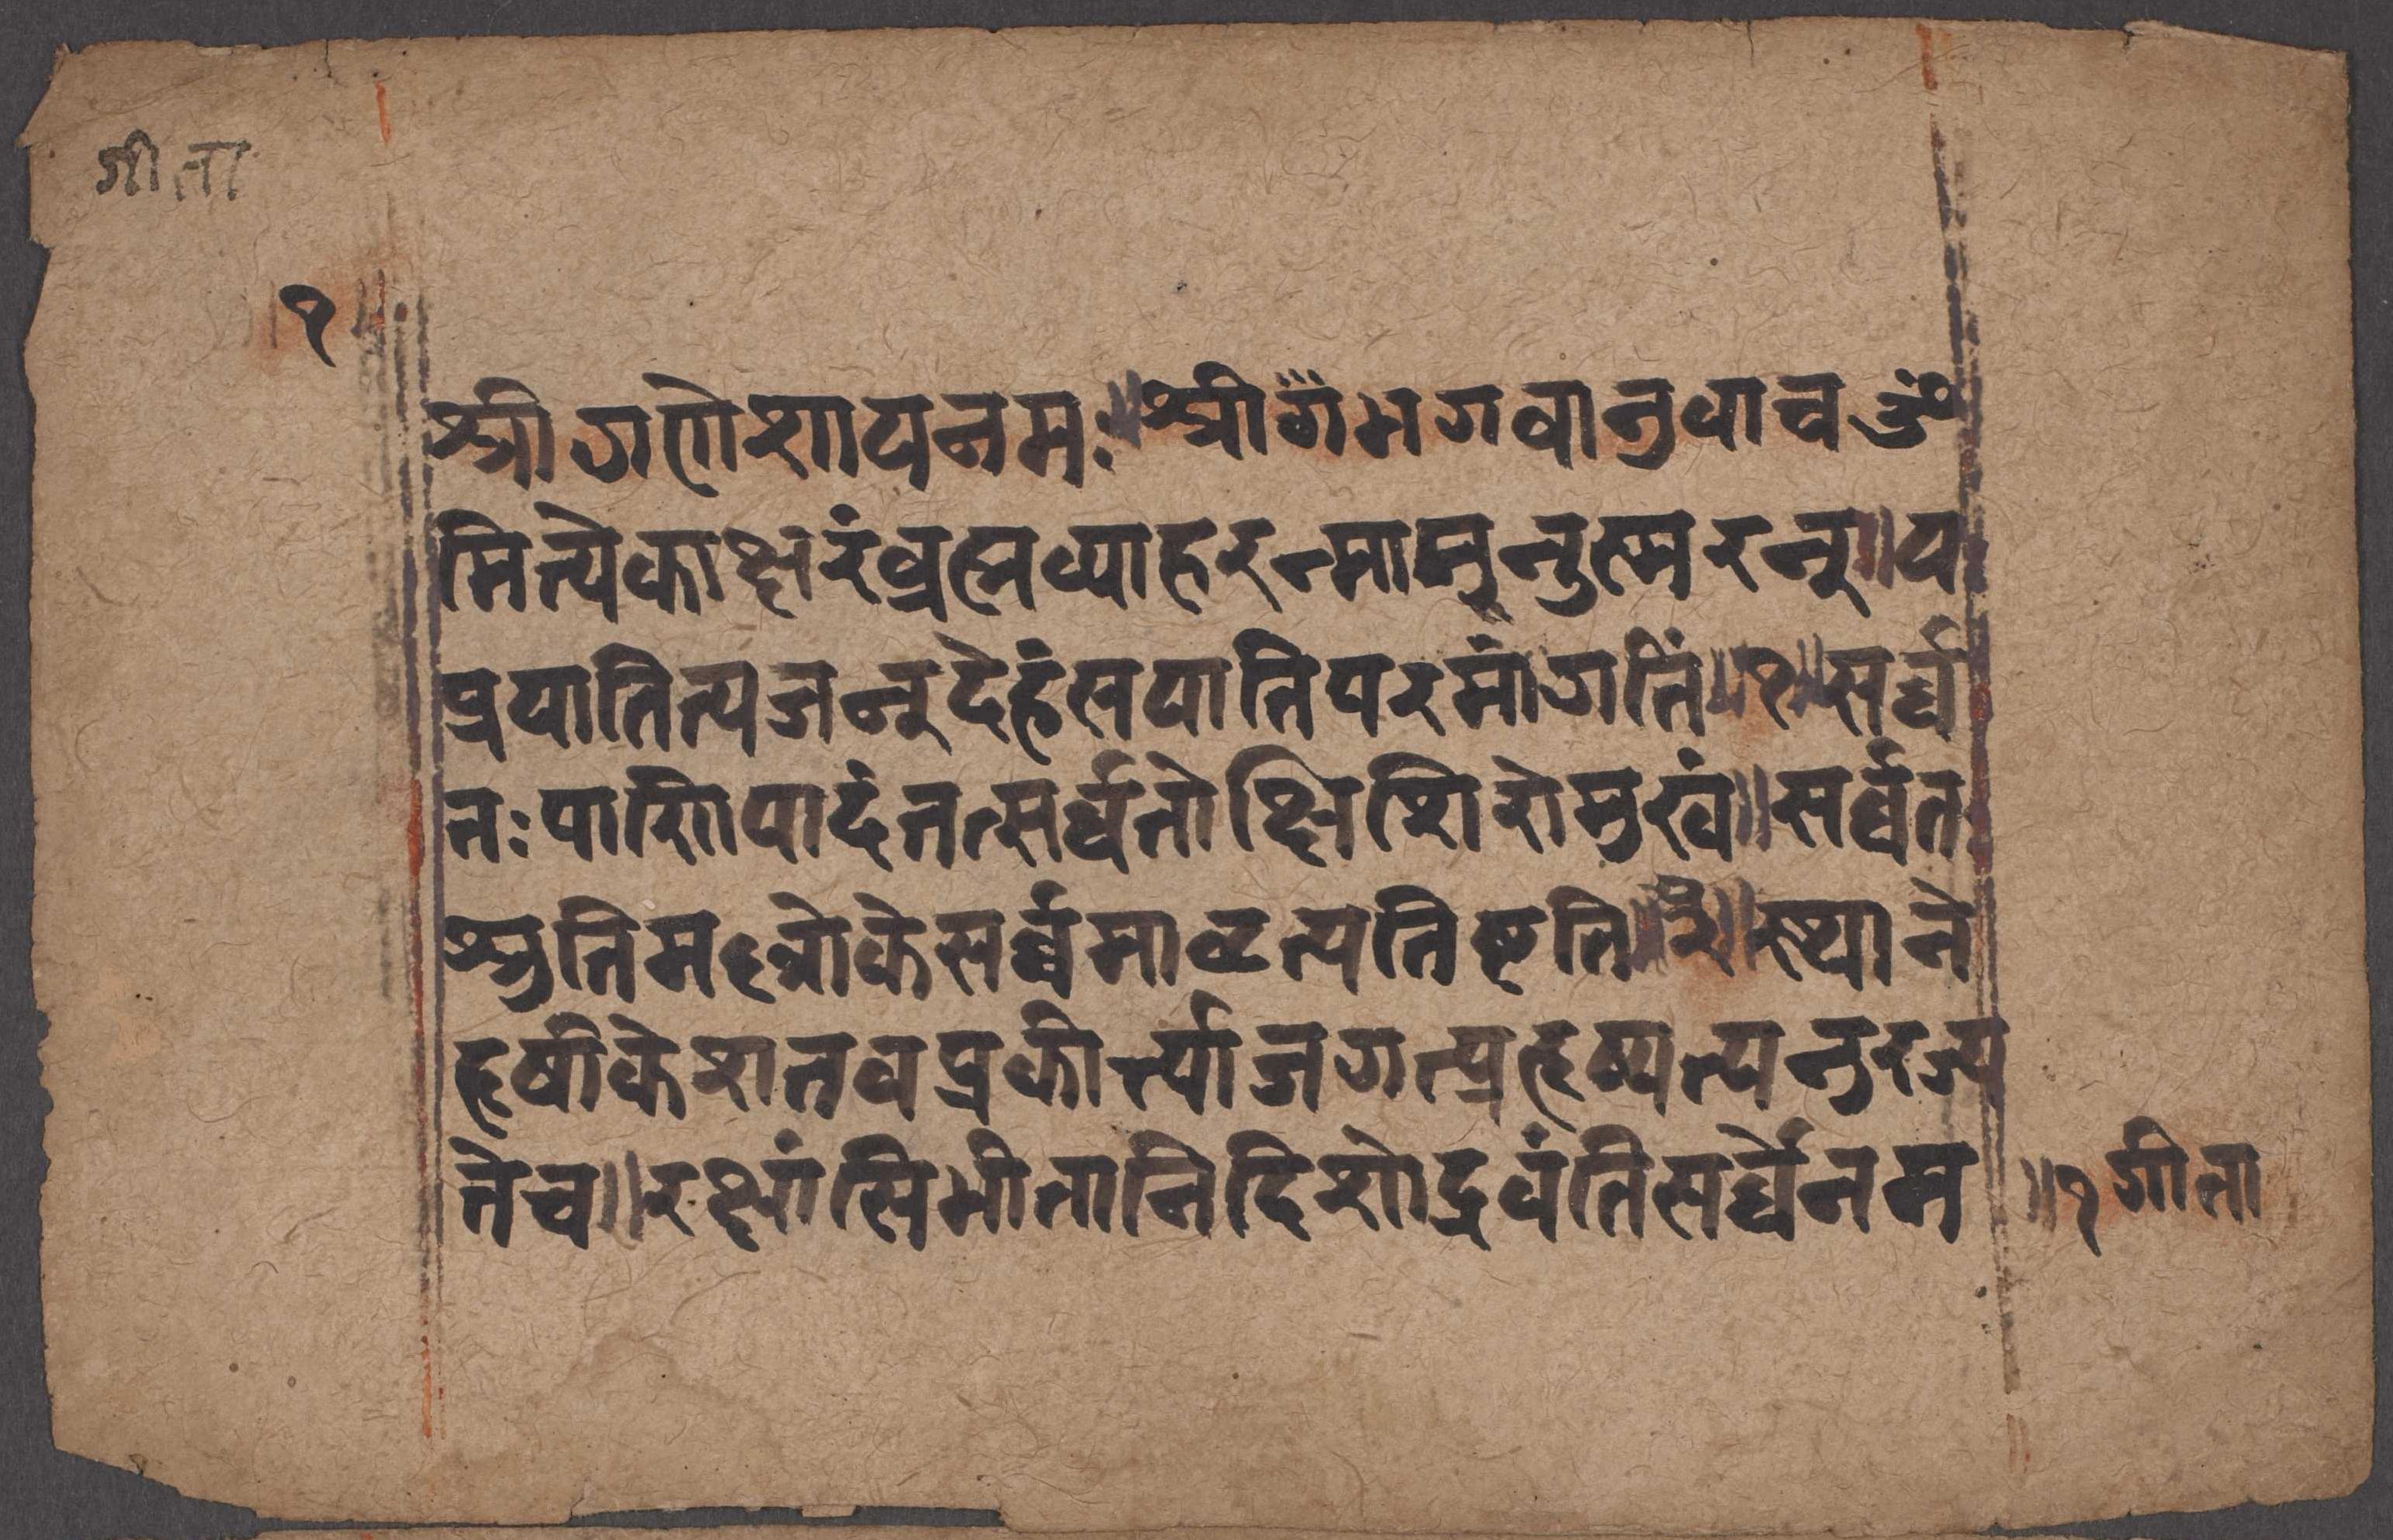 गीता
१
श्रीगणेशायनमः॥श्रीभगवानुवाचॐ
मित्येकाक्षरंव्रह्मव्याहरन्मामनुस्मरन्॥य
प्रयातित्यजन्देहंसयातिपरमांगतिं॥१॥सर्व्व
तःपाणिपादंतत्सर्व्वतोक्षिशिरोमुखं॥सर्व्वत
श्रुतिमल्लोकेसर्व्वमावृत्यतिष्ठति॥२॥स्थाने
हृषीकेशतवप्रकीर्त्याजगत्प्रहृष्यत्यनुरज्य
तेच॥रक्षांसिभीतानिदिशोद्रवंतिसर्व्वेनम
॥१गीता